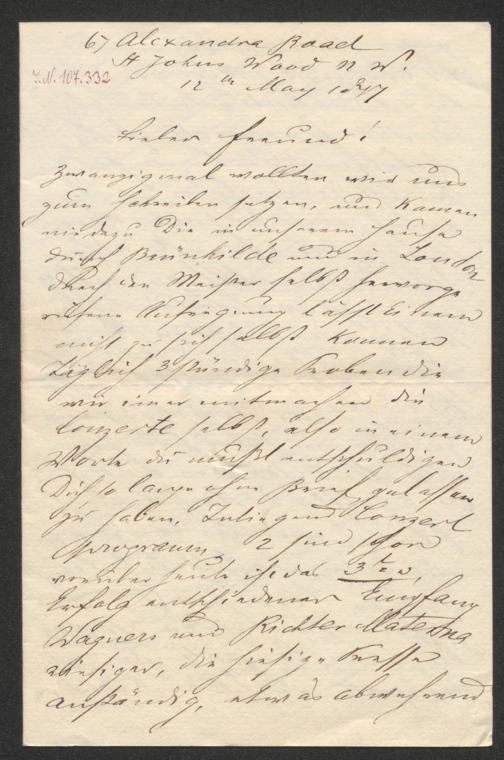 67 Alexandra Road
St Johns Wood N. W.
I.N. 107.332
12th May 1877
Lieber Freund!
Zwanzigmal wollten wir uns
zum Schreiben setzen, und kamen
nie dazu Die in unserem Hause
durch Brünhilde und in London
durch den Meister selbst hervorge
rufene Aufregung lässt Einem
nicht zu sich selbst kommen
Täglich 3stündige Proben die
wir immer mitmachen die
Conzerte selbst, also in einem
Worte du mußt entschuldigen
Dich so lange ohne Brief gelassen
zu haben. Inliegend Conzert
programm, 2 sind schon
vorüber heute ist das 3te,
Erfolg entschiedener Empfang
Wagners und Richter Materna
riesiger, die hiesige Presse
anständig, etwas abwehrend